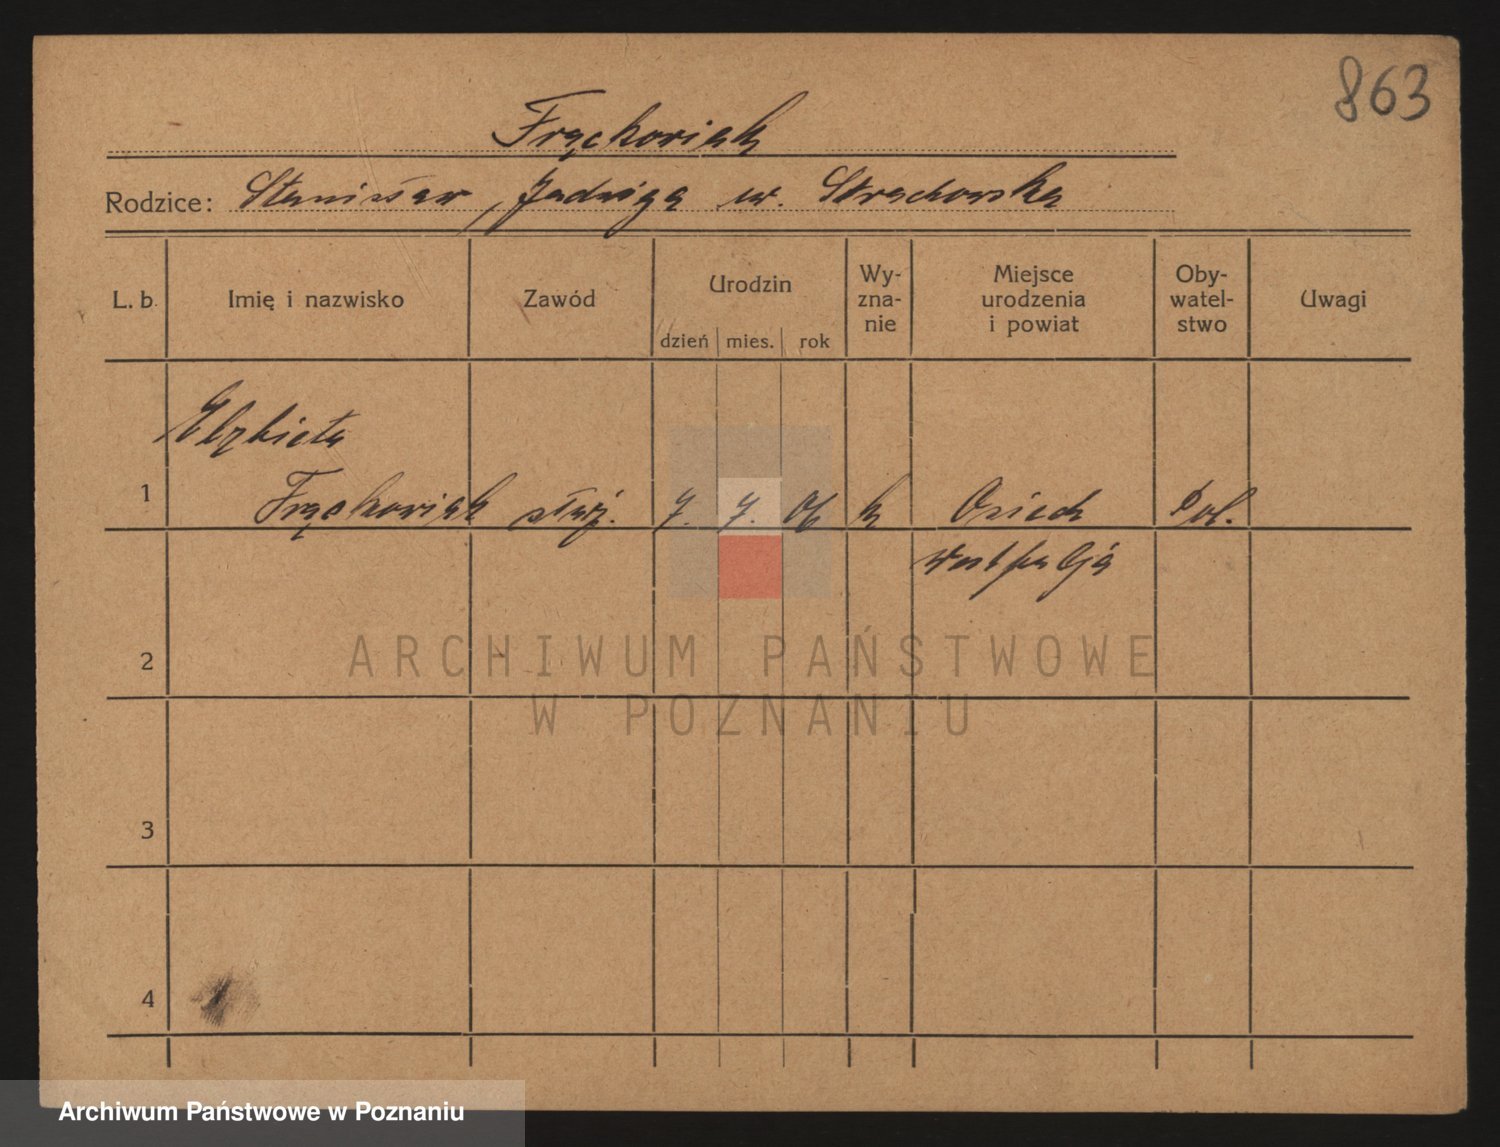 863
Frąckowiak
Rodzice: Stanisław, Jadwiga ur. Strachowska
L. b. Imię i nazwisko Zawód Urodzin dzień mies. rok Wy-zna-nie Miejsce urodzenia i powiat Oby-watel-stwo Uwagi
Elżbieta
1 Frąckowiak służ. 7. 7. 06 k Pol.
2
3
4
ARCHIWUM PAŃSTWOWE
W POZNANIU
Archiwum Państwowe w Poznaniu